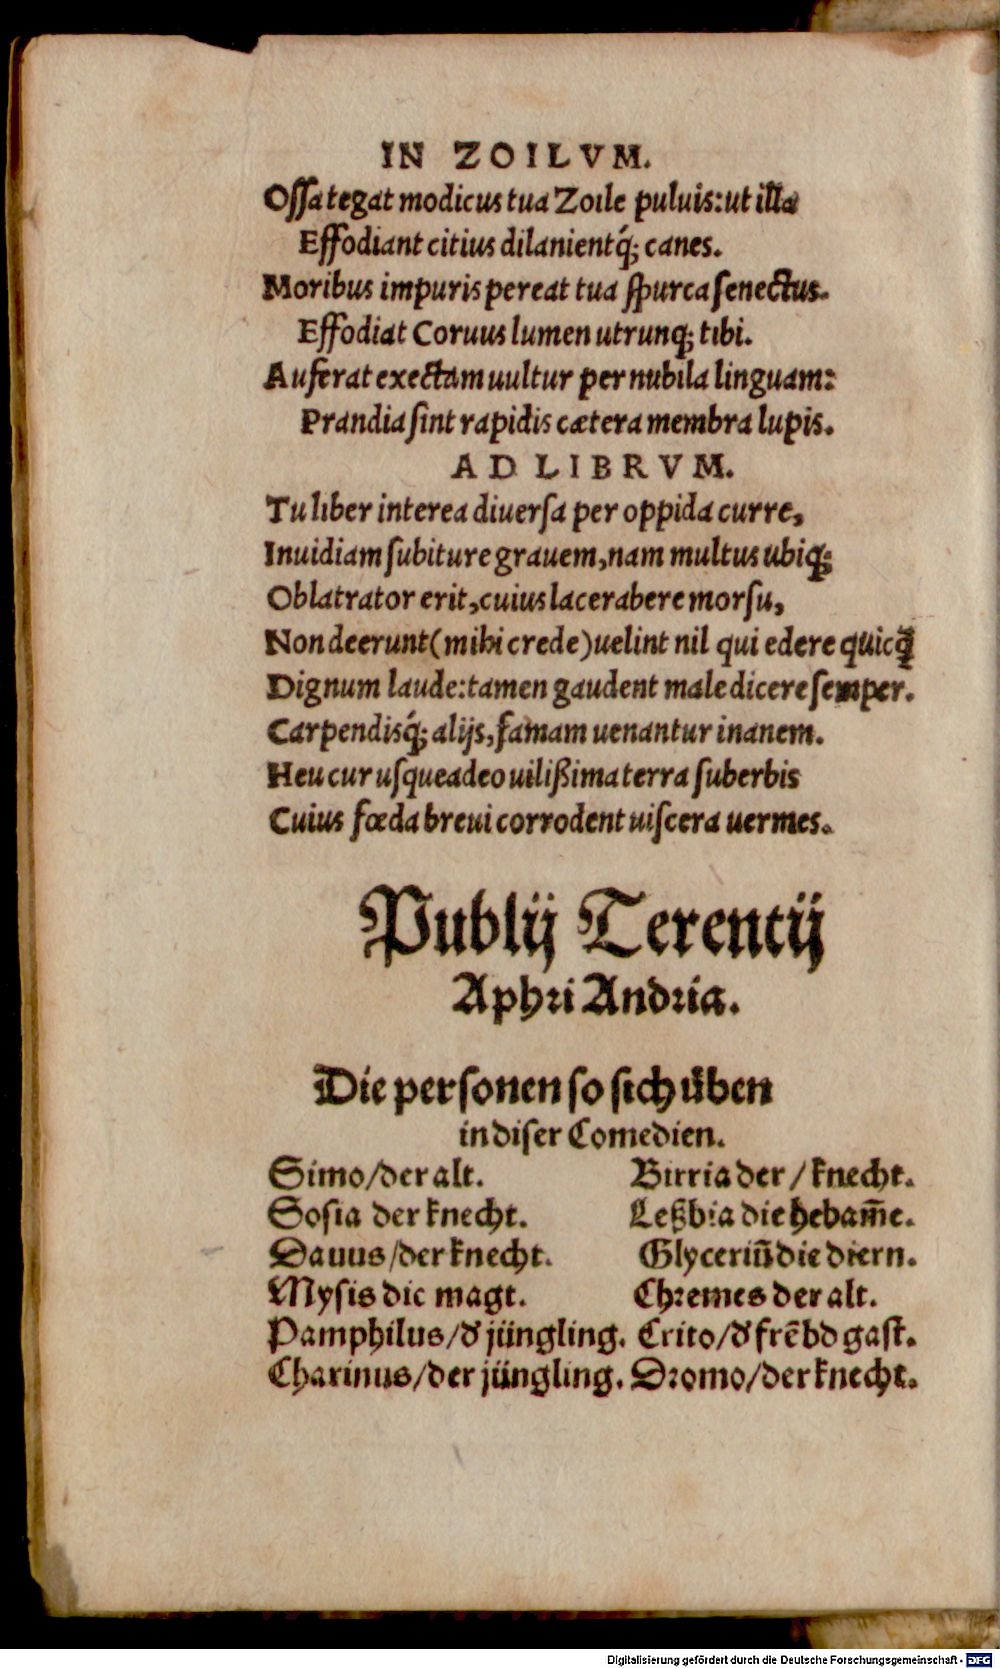 IN ZOILVM.
Oſſa tegat modicus tua Zoile puluis: ut illa
Effodiant citius dilanientq́; canes.
Moribus impuris pereat tua ſpurca ſenectus.
Effodiat Coruus lumen utrunq; tibi.
Auferat exectam uultur per nubila linguam:
Prandia ſint rapidis cætera membra lupis.
AD LIBRVM.
Tu liber interea diuerſa per oppida curre,
Inuidiam ſubiture grauem, nam multus ubiq;
Oblatrator erit, cuius lacerabere morſu,
Non deerunt (mihi crede) uelint nil qui edere quicq̃
Dignum laude: tamen gaudent maledicere ſemper.
Carpendisq́; alijs, famam uenantur inanem.
Heu cur uſqueadeo uilißima terra ſuberbis
Cuius fœda breui corrodent uiſcera uermes.
Publij Terentij
Aphri Andria.
Die perſonen ſo ſich üben
in diſer Comedien.
Simo/der alt. Birria der/knecht.
Soſia der knecht. Leßbia die hebam̄e.
Dauus/der knecht. Glyceriū die diern.
Myſis die magt. Chremes der alt.
Pamphilus/d' jüngling. Crito/d' frēbd gaſt.
Charinus/der jüngling. Dromo/der knecht.
Digitalisierung gefördert durch die Deutsche Forschungsgemeinschaft - DFG